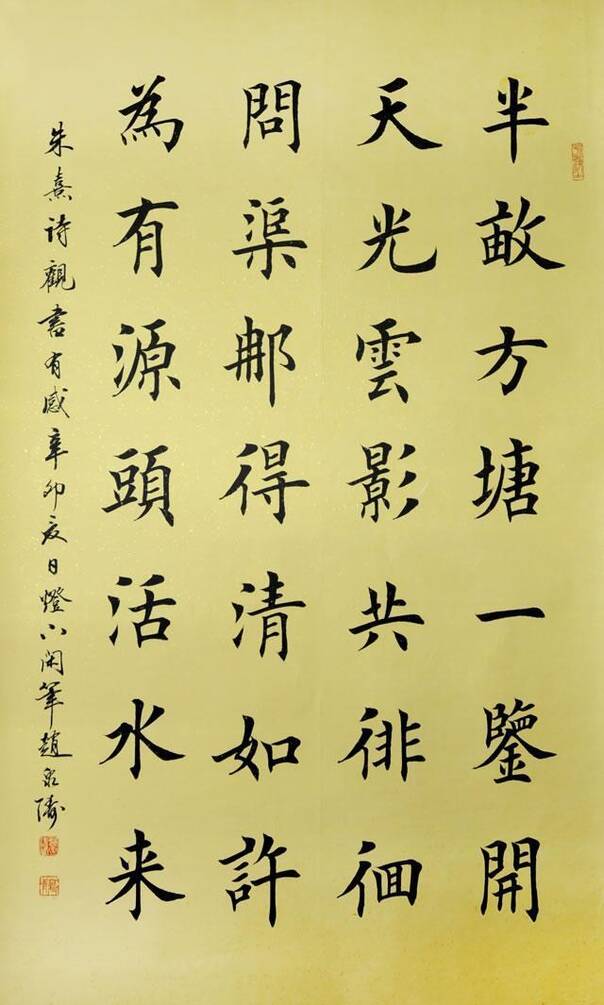 半畝方塘一鑒開
天光雲影共徘徊
問渠那得清如許
為有源頭活水来
朱熹詩觀書有感辛卯夏日燈下閑筆趙